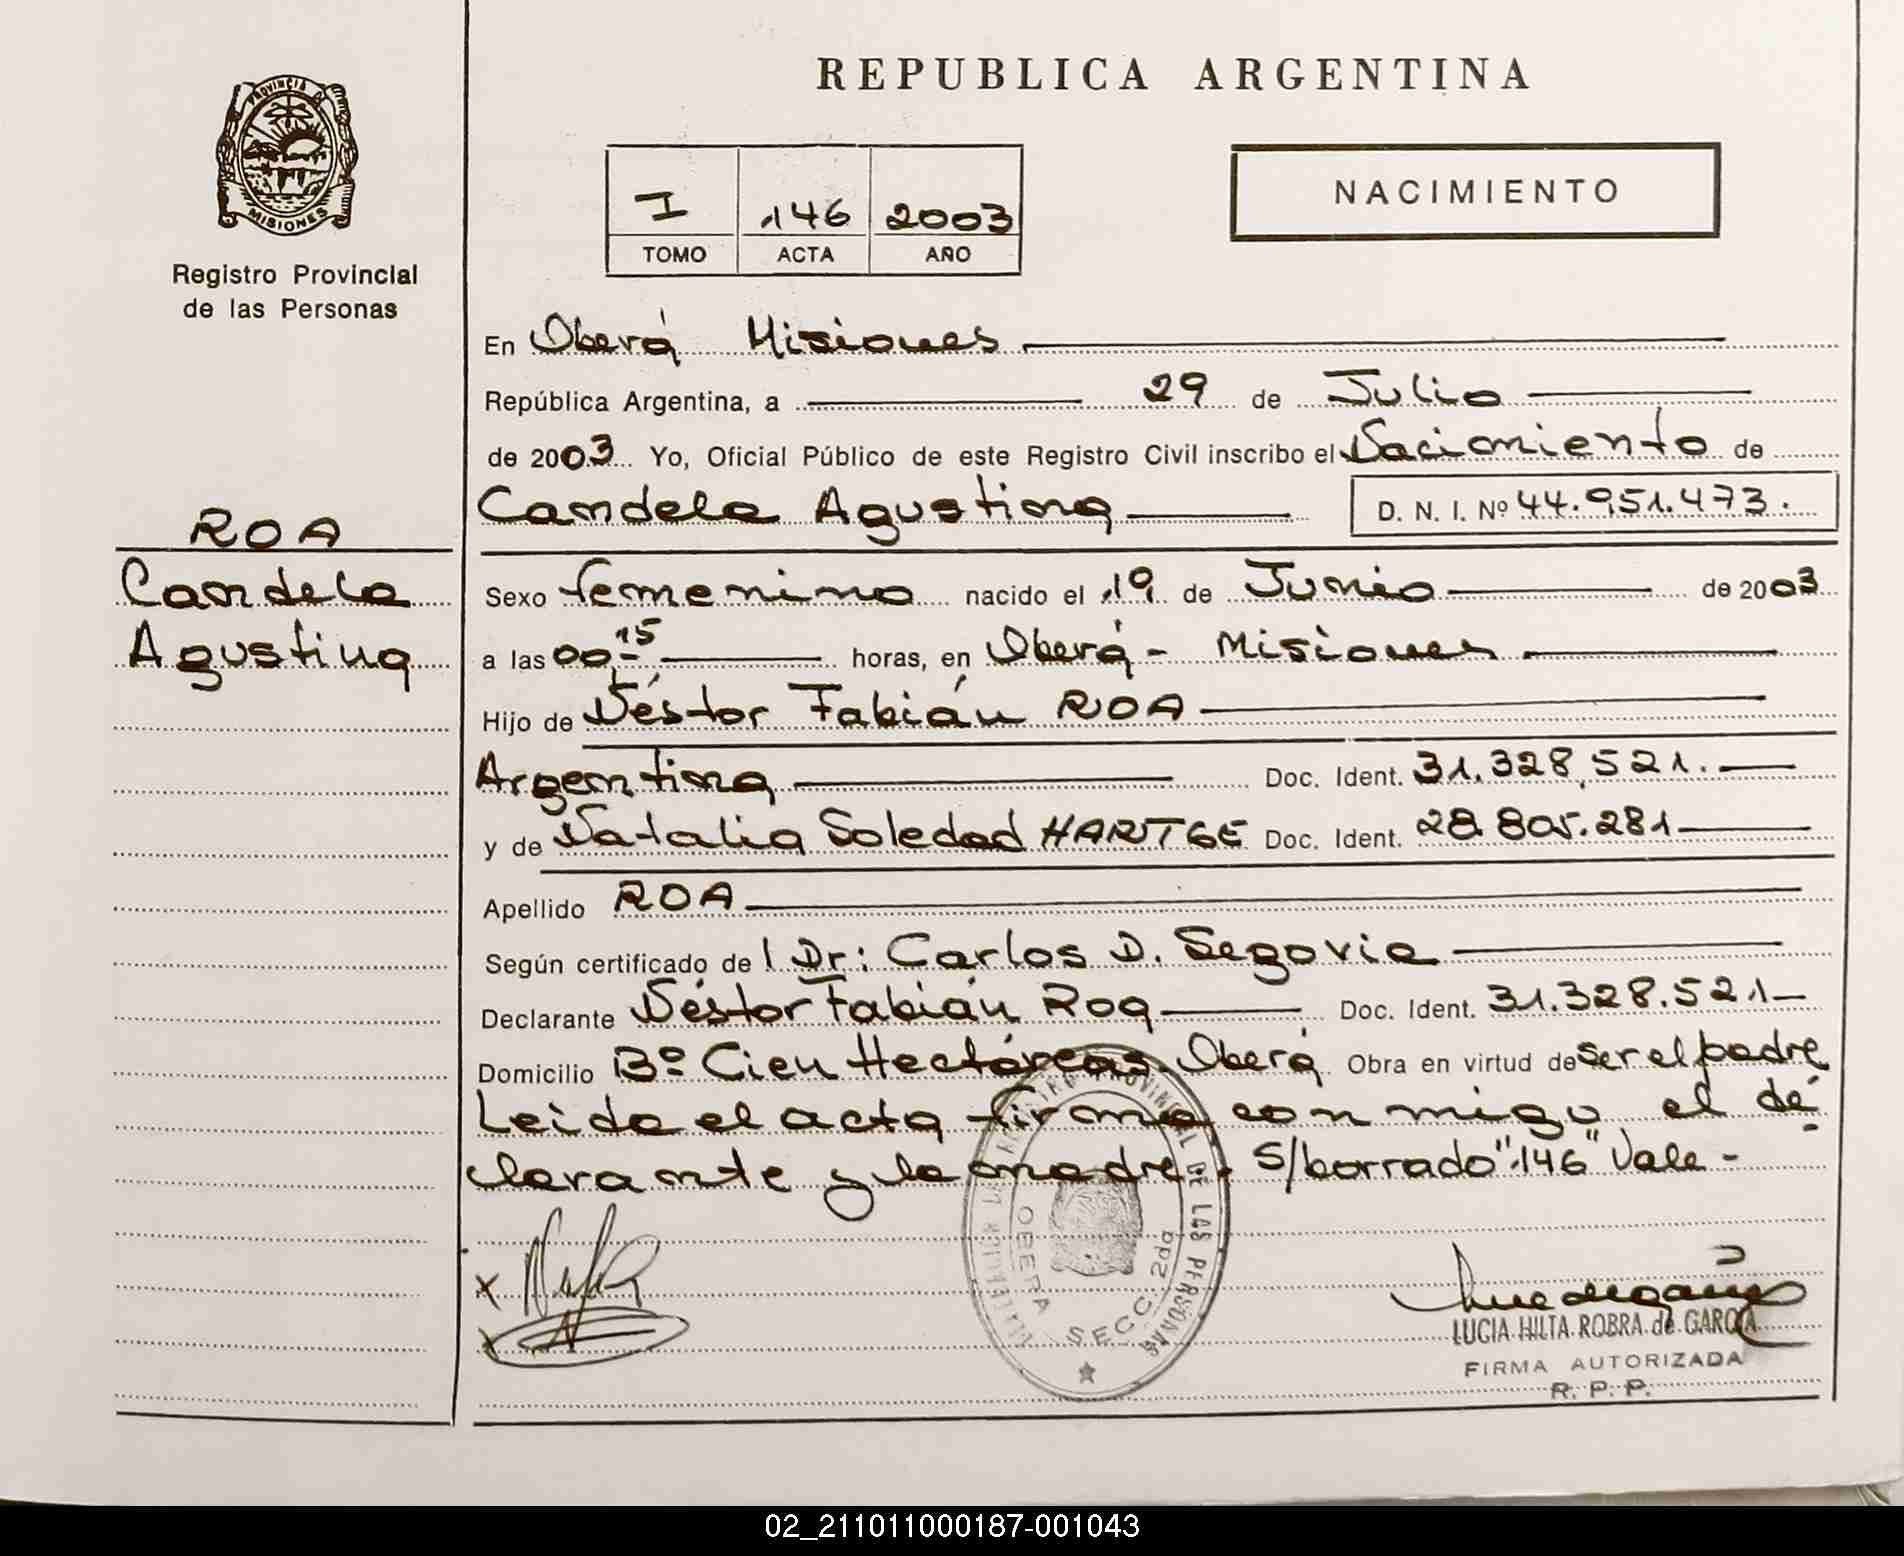 REPUBLICA ARGENTINA
PROVINCIA DE
MISIONES
Registro Provincial
de las Personas
I 146 2003
TOMO ACTA AÑO
NACIMIENTO
En Oberá Misiones
República Argentina, a 29 de Julio
de 2003 Yo, Oficial Público de este Registro Civil inscribo el Nacimiento de
Candela Agustina D. N. I. Nº 44.951.473.
ROA
Candela
Agustina
Sexo femenino nacido el 19 de Junio de 2003
a las 00,15 horas, en Oberá - Misiones
Hijo de Néstor Fabián ROA
Argentina Doc. Ident. 31.328.521.
y de Natalia Soledad HARTGE Doc. Ident. 28.805.281
Apellido ROA
Según certificado de l Dr: Carlos D. Segovia
Declarante Néstor Fabián Roa Doc. Ident. 31.328.521
Domicilio Bº Cien Hectáreas. Oberá Obra en virtud de ser el padre
Leida el acta firma con migo el de
clarante y la madre. S/borrado "146" Vale -
REGISTRO PROVINCIAL DE LAS PERSONAS
OBERA SECC. 2da
LUCIA HILTA ROBRA de GARCIA
FIRMA AUTORIZADA
R. P. P.
02_211011000187-001043